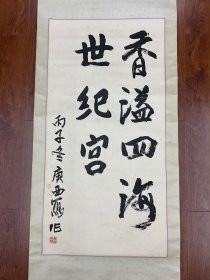 香溢四海
世纪宫
丙子冬庚西写作